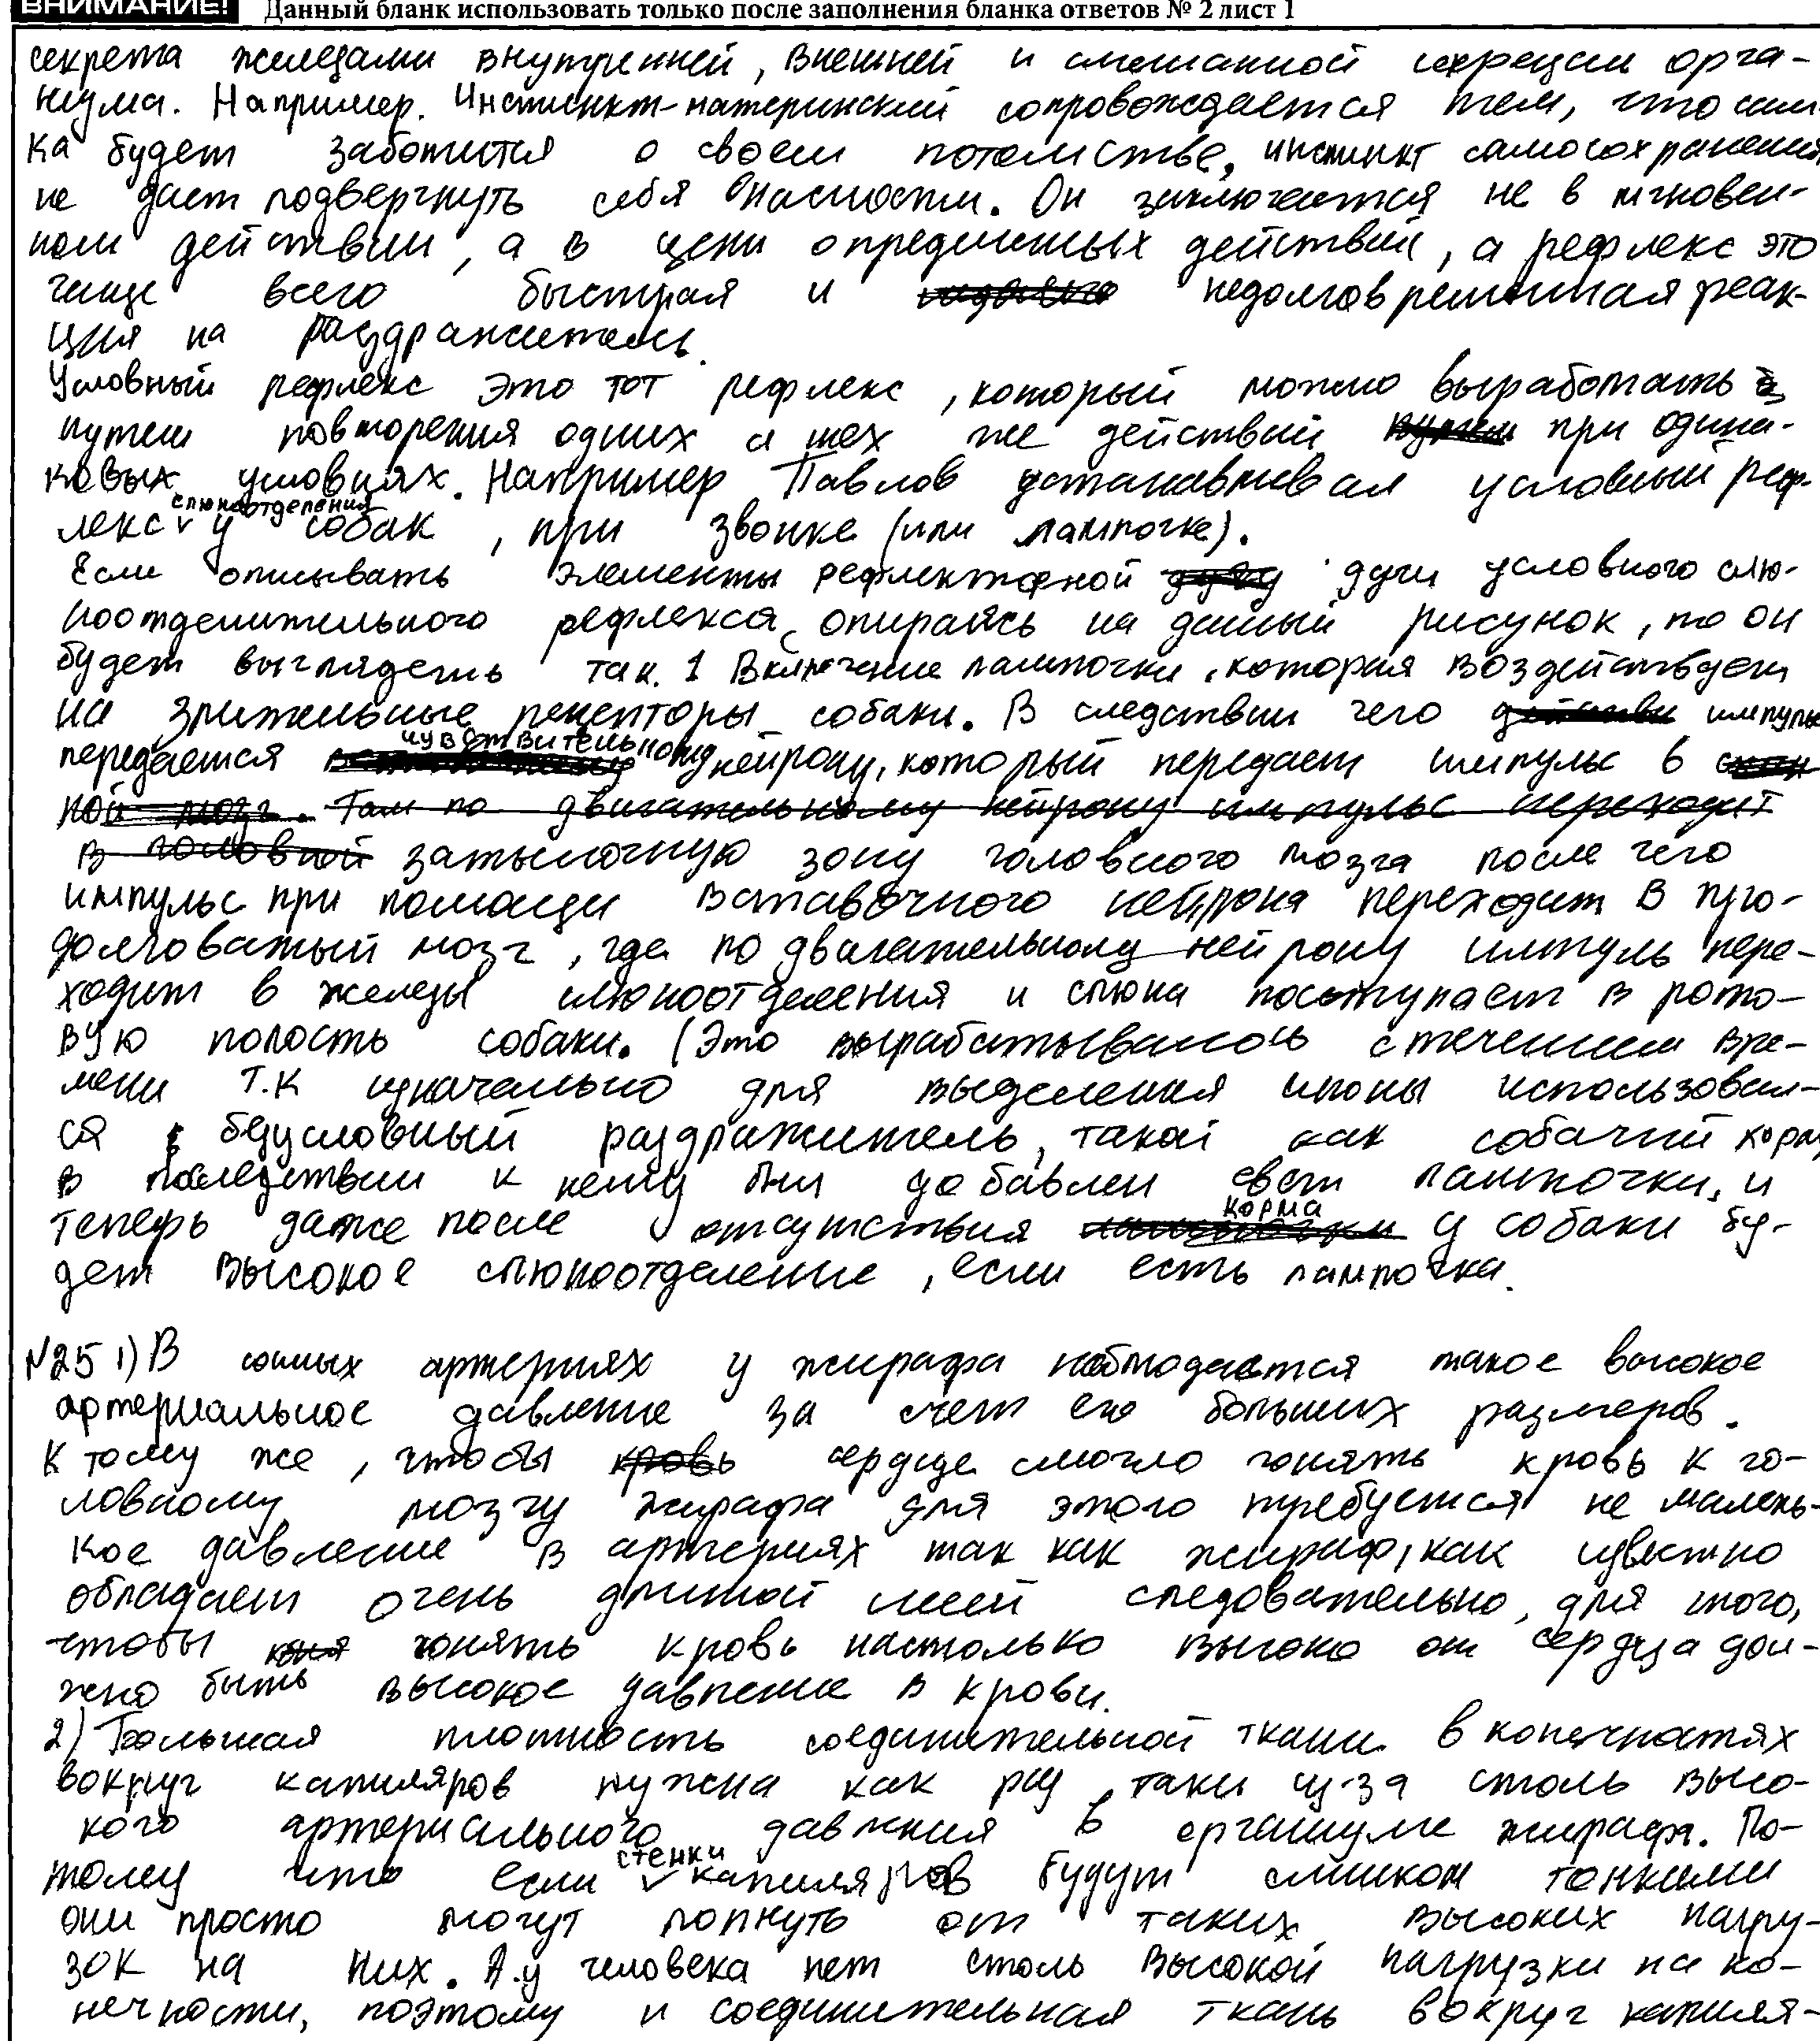 ВНИМАНИЕ! Данный бланк использовать только после заполнения бланка ответов № 2 лист 1
секрета железами внутренней, внешней и смешанной секреции орга-
низма. Например. Инстинкт-материнский сопровождается тем, что сам-
ка будет заботится о своем потомстве, инстинкт самосохранения
не дает подвергнуть себя опасности. Он заключается не в мгновен-
ном действии, а в цепи определенных действий, а рефлекс это
чаще всего быстрая и недолговременная реак-
ция на раздражитель.
Условный рефлекс это тот рефлекс, который можно выработать
путем повторения одних и тех же действий при одина-
ковых условиях. Например Павлов устанавливал условный реф-
лекс слюноотделения у собак, при звонке (или лампочке).
Если описывать элементы рефлекторной дуги условного слю-
ноотделительного рефлекса, опираясь на данный рисунок, то он
будет выглядеть так. 1 Включение лампочки, которая воздействует
на зрительные рецепторы собаки. В следствии чего импульс
передается чувствительному нейрону, который передает импульс в
кой мозг. Там по двигательному нейрону импульс переходит
в головной затылочную зону головного мозга после чего
импульс при помощи вставочного нейрона переходит в про-
долговатый мозг, где по двигательному нейрону импуль пере-
ходит в железы слюноотделения и слюна поступает в рото-
вую полость собаки. (Это вырабатывалось с течением вре-
мени т.к изначально для выделения слюны использовал-
ся безусловный раздражитель, такой как собачий корм,
в последствии к нему был добавлен свет лампочки, и
теперь даже после отсутствия корма у собаки бу-
дет высокое слюноотделение, если есть лампочка.
№25 1) В сонных артериях у жирафа наблюдается такое высокое
артериальное давление за счет его больших размеров.
К тому же, чтобы кровь сердце смогло гонять кровь к го-
ловному мозгу жирафа для этого требуется не малень-
кое давление в артериях так как жираф, как известно
обладает очень длинной шеей следовательно, для того,
чтобы гонять кровь настолько высоко от сердца дол-
жно быть высокое давление в крови.
2) Большая плотность соединительной ткани в конечностях
вокруг капиляров нужна как раз таки из-за столь высо-
кого артериального давления в организме жирафа. По-
тому что если стенки капиляров будут слишком тонкими
они просто могут лопнуть от таких высоких нагру-
зок на них. А у человека нет столь высокой нагрузки на ко-
нечности, поэтому и соединительная ткань вокруг капиля-